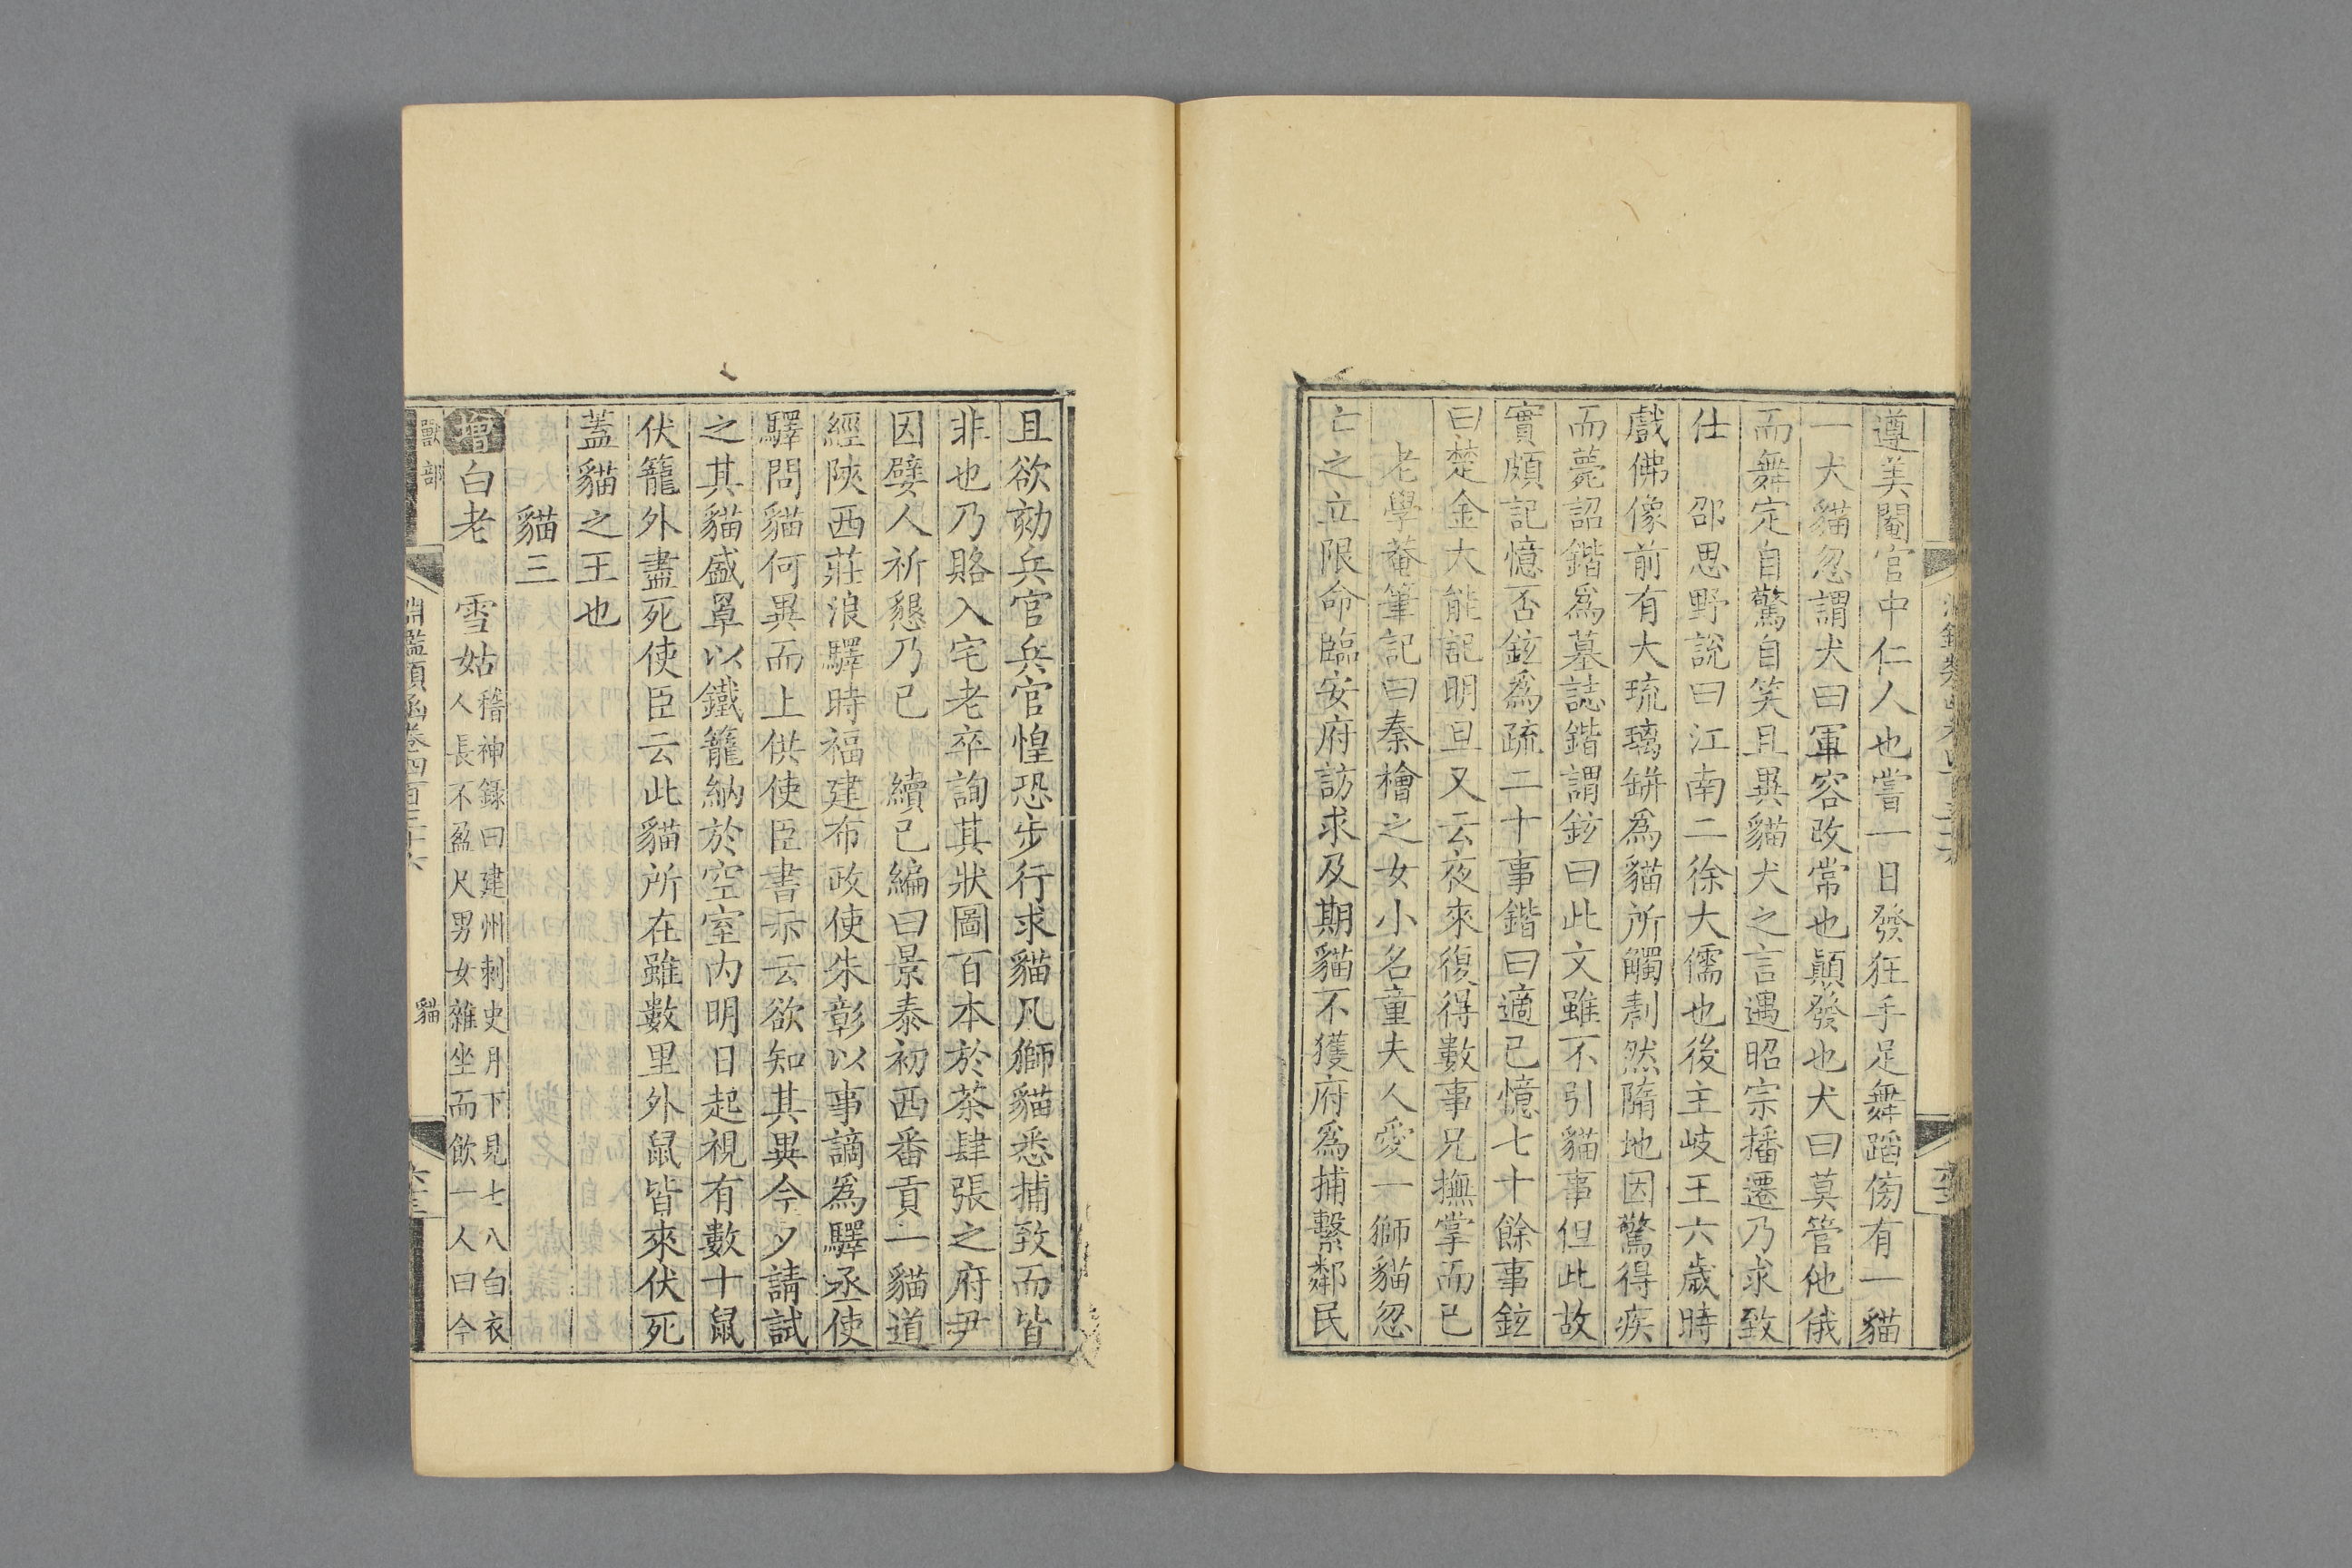 遵美閹官中仁人也嘗一日發狂手足舞蹈傍有一貓
一犬貓忽謂犬曰軍容改常也顛發也犬曰莫管他俄
而舞定自驚自笑且異貓犬之言遇昭宗播遷乃求致
仕　邵思野說曰江南二徐大儒也後主岐王六歲時
戲佛像前有大琉璃缾爲貓所觸劃然隋地因驚得疾
而薨詔鍇爲墓誌鍇謂鉉曰此文雖不引貓事但此故
實頗記憶否鉉爲疏二十事鍇曰適已憶七十餘事鉉
曰楚金大能記明旦又云夜來復得數事兄撫掌而已
老學菴筆記曰秦檜之女小名童夫人愛一獅貓忽
亡之立限命臨安府訪求及期貓不獲府爲捕繫鄰民
且欲劾兵官兵官惶恐步行求貓凡獅貓悉捕致而皆
非也乃賂入宅老卒詢其狀圖百本於茶肆張之府尹
因嬖人祈懇乃已　續已編曰景泰初西番貢一貓道
經陝西莊浪驛時福建布政使朱彰以事謫爲驛丞使
驛問貓何異而上供使臣書示云欲知其異今夕請試
之其貓盛罩以鐵籠納於空室內明日起視有數十鼠
伏籠外盡死使臣云此貓所在雖數里外鼠皆來伏死
蓋貓之王也
貓三
增白老　雪姑稽神錄曰建州刺史月下見七八白衣
人長不盈尺男女雜坐而飲一人曰今
獸部
淵鑑類函卷四百三十六
貓